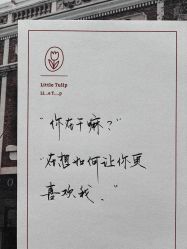 Little Tulip
“你在干嘛？”
“在想如何让你更
喜欢我．”